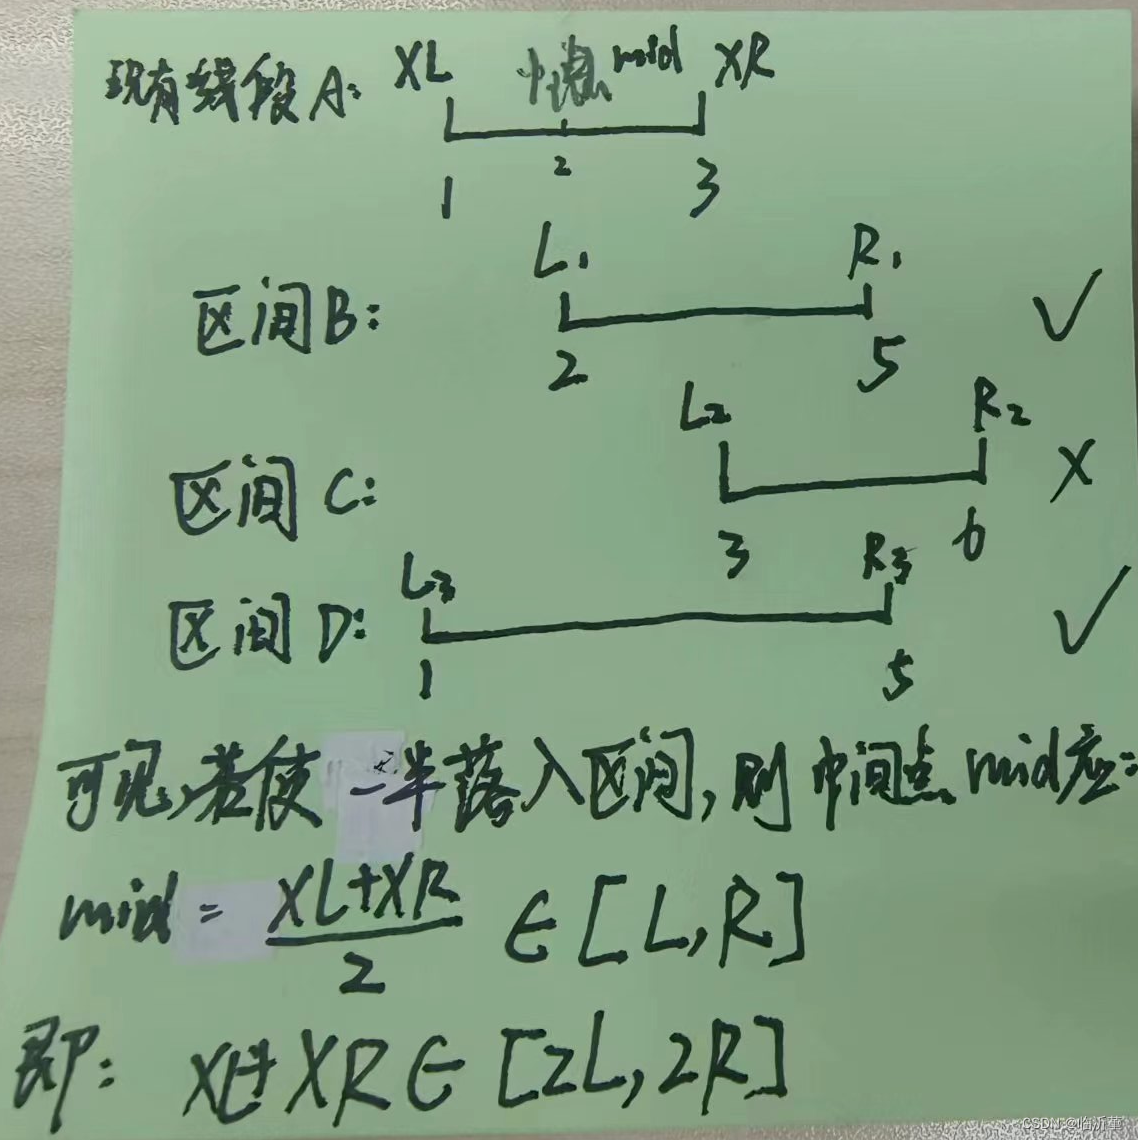 现有线段A: XL 中点mid XR
1 2 3
L1 R1
区间B: √
2 5
L2 R2
区间 C: X
3 6
L3 R3
区间 D: √
1 5
可见,若使一半落入区间,则中间点mid应:
mid = (XL+XR)/2 ∈ [L,R]
即: XL+XR ∈ [2L,2R]
CSDN @临沂堇